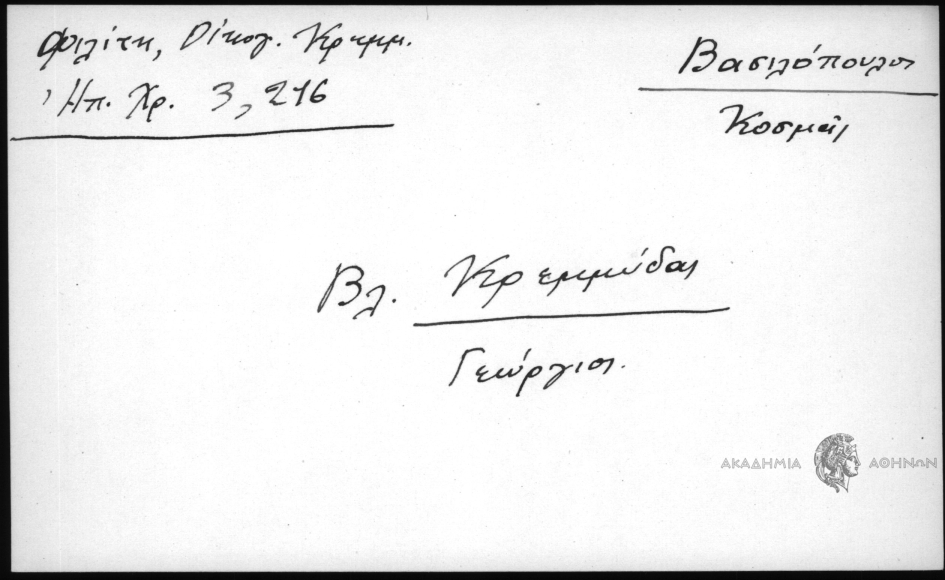 Φιλίτη, Οίκογ. Κρεμμ.
Ἠπ. Χρ. 3, 246
Βασιλόπουλος
Κοσμᾶς
Βλ. Κρεμμύδας
Γεώργιος.
ΑΚΑΔΗΜΙΑ ΑΘΗΝΩΝ